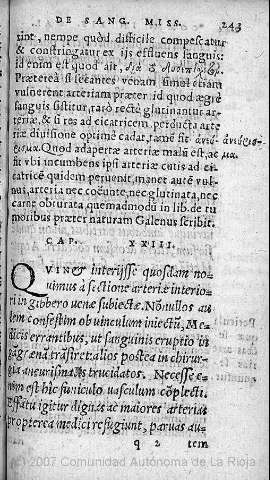 DE SANG. MISS. 243
sint, nempe quòd difficile compescatur
& constringatur ex ijs effluens sanguis:
id enim est quod ait,
Præterea si secantes venam simul etiam
vulnerent arteriam præter id quod ægrè
sanguis sistitur, rarò rectè glutinantur ar-
teriæ, & si res ad cicatricem perducta arte
riæ diuisione optimè cadat,
Quod adapertæ arteriæ malū est, ac
sit vbi incumbens ipsi arteriæ cutis ad ci-
catricē quidem peruenit, manet autē vul-
nus, arteria nec coeunte, nec glutinata, nec
carne obturata, quemadmodū in lib. de tu
moribus præter naturam Galenus scribit.
CAP. XXIII.
QVIN & interijsse quosdam no-
uimus à sectione arteriæ interio-
ri in gibbero uenæ subiectæ. Nōnullos au
tem confestim ob uinculum iniectū, Me-
dicis errantibus, ut sanguinis eruptio in
gāgrænā trāsiret: alios postea in chirur-
gia aneurismatis trucidatos. Necesse e-
nim est hîc funiculo uasculum cōplecti.
igitur ac maiores arterias
propterea medici refugiunt, paruas au-
q 2 tem
(c) 2007 Comunidad Autónoma de La Rioja